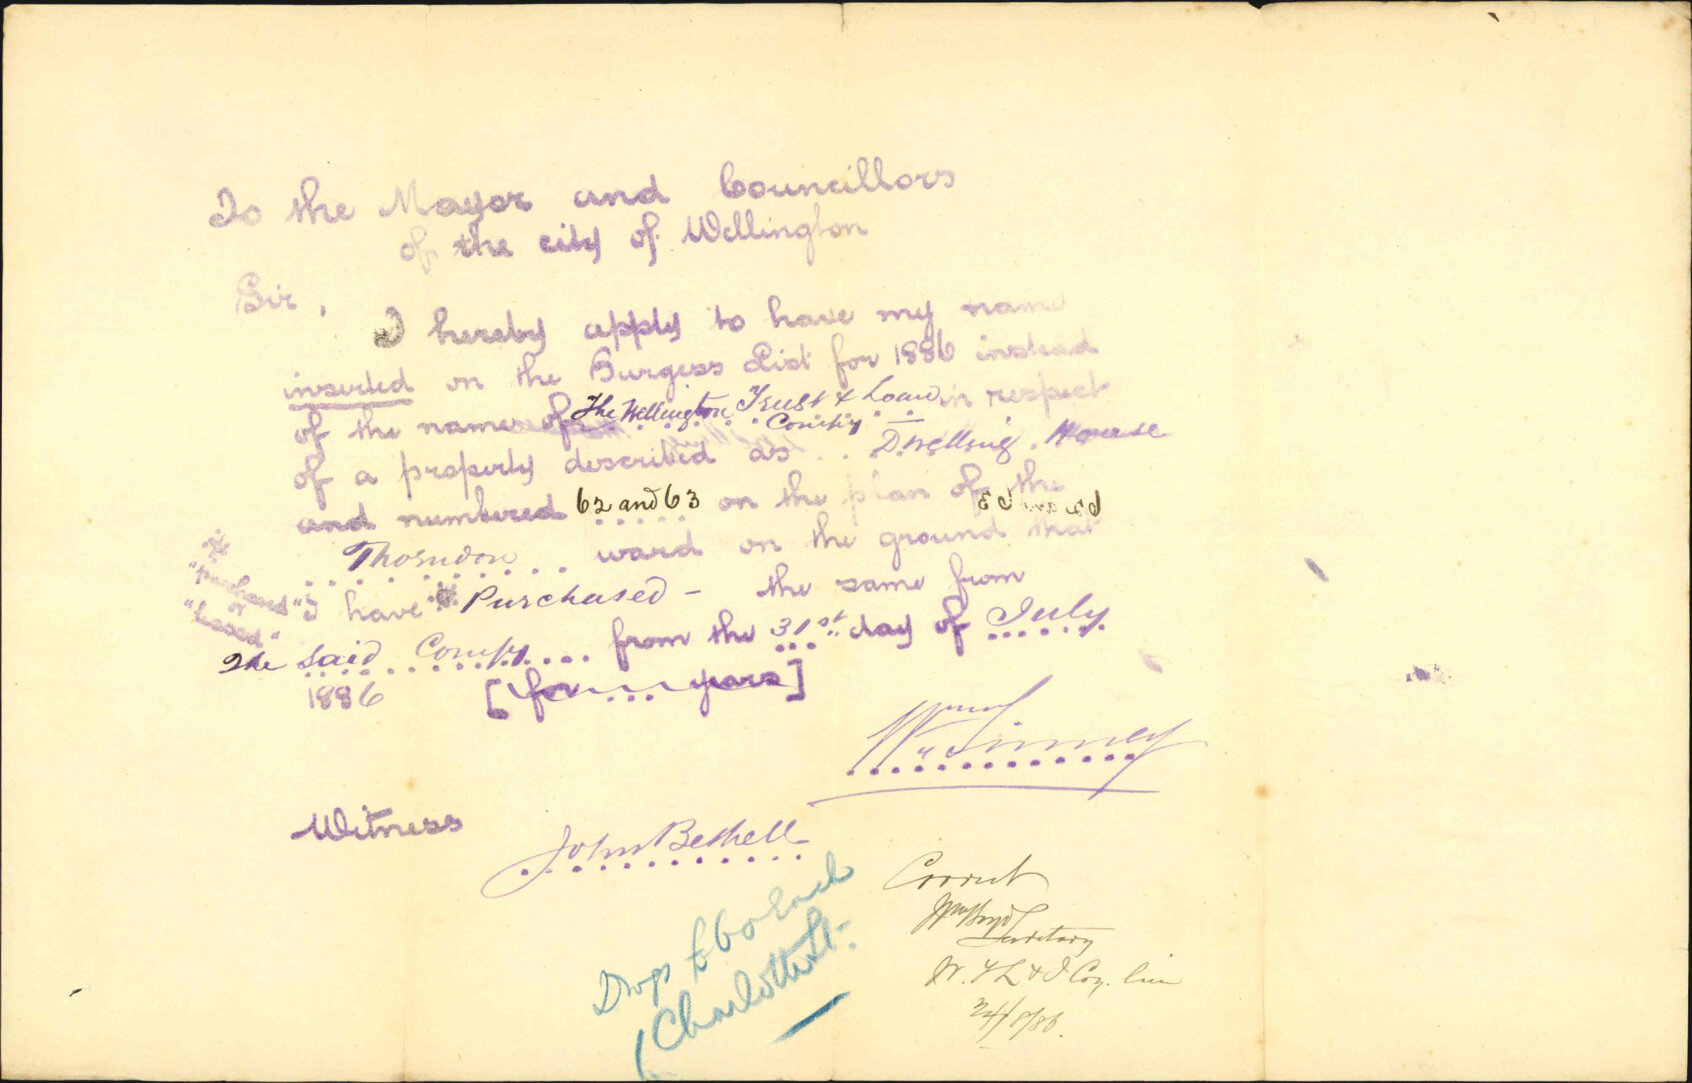 To the Mayor and Councillors
of the city of Wellington
Sir,
I hereby apply to have my name
inserted on the Burgess List for 1886 instead
of the name of The Wellington Trust & Loan in respect
Compy
of a property described as Dwelling House
and numbered 62 and 63 on the plan of the
Thorndon ward on the ground that
* "purchased" or "leased"
I have * Purchased - the same from
The said Compy from the 31st day of July
1886 [for ... years]
Wm Tinney
Witness John Bethell
Correct
Wm Boyd
Secretary
W. T L & I Coy. Lim
24/8/86.
Drop £60 Each
(Charlotte St.